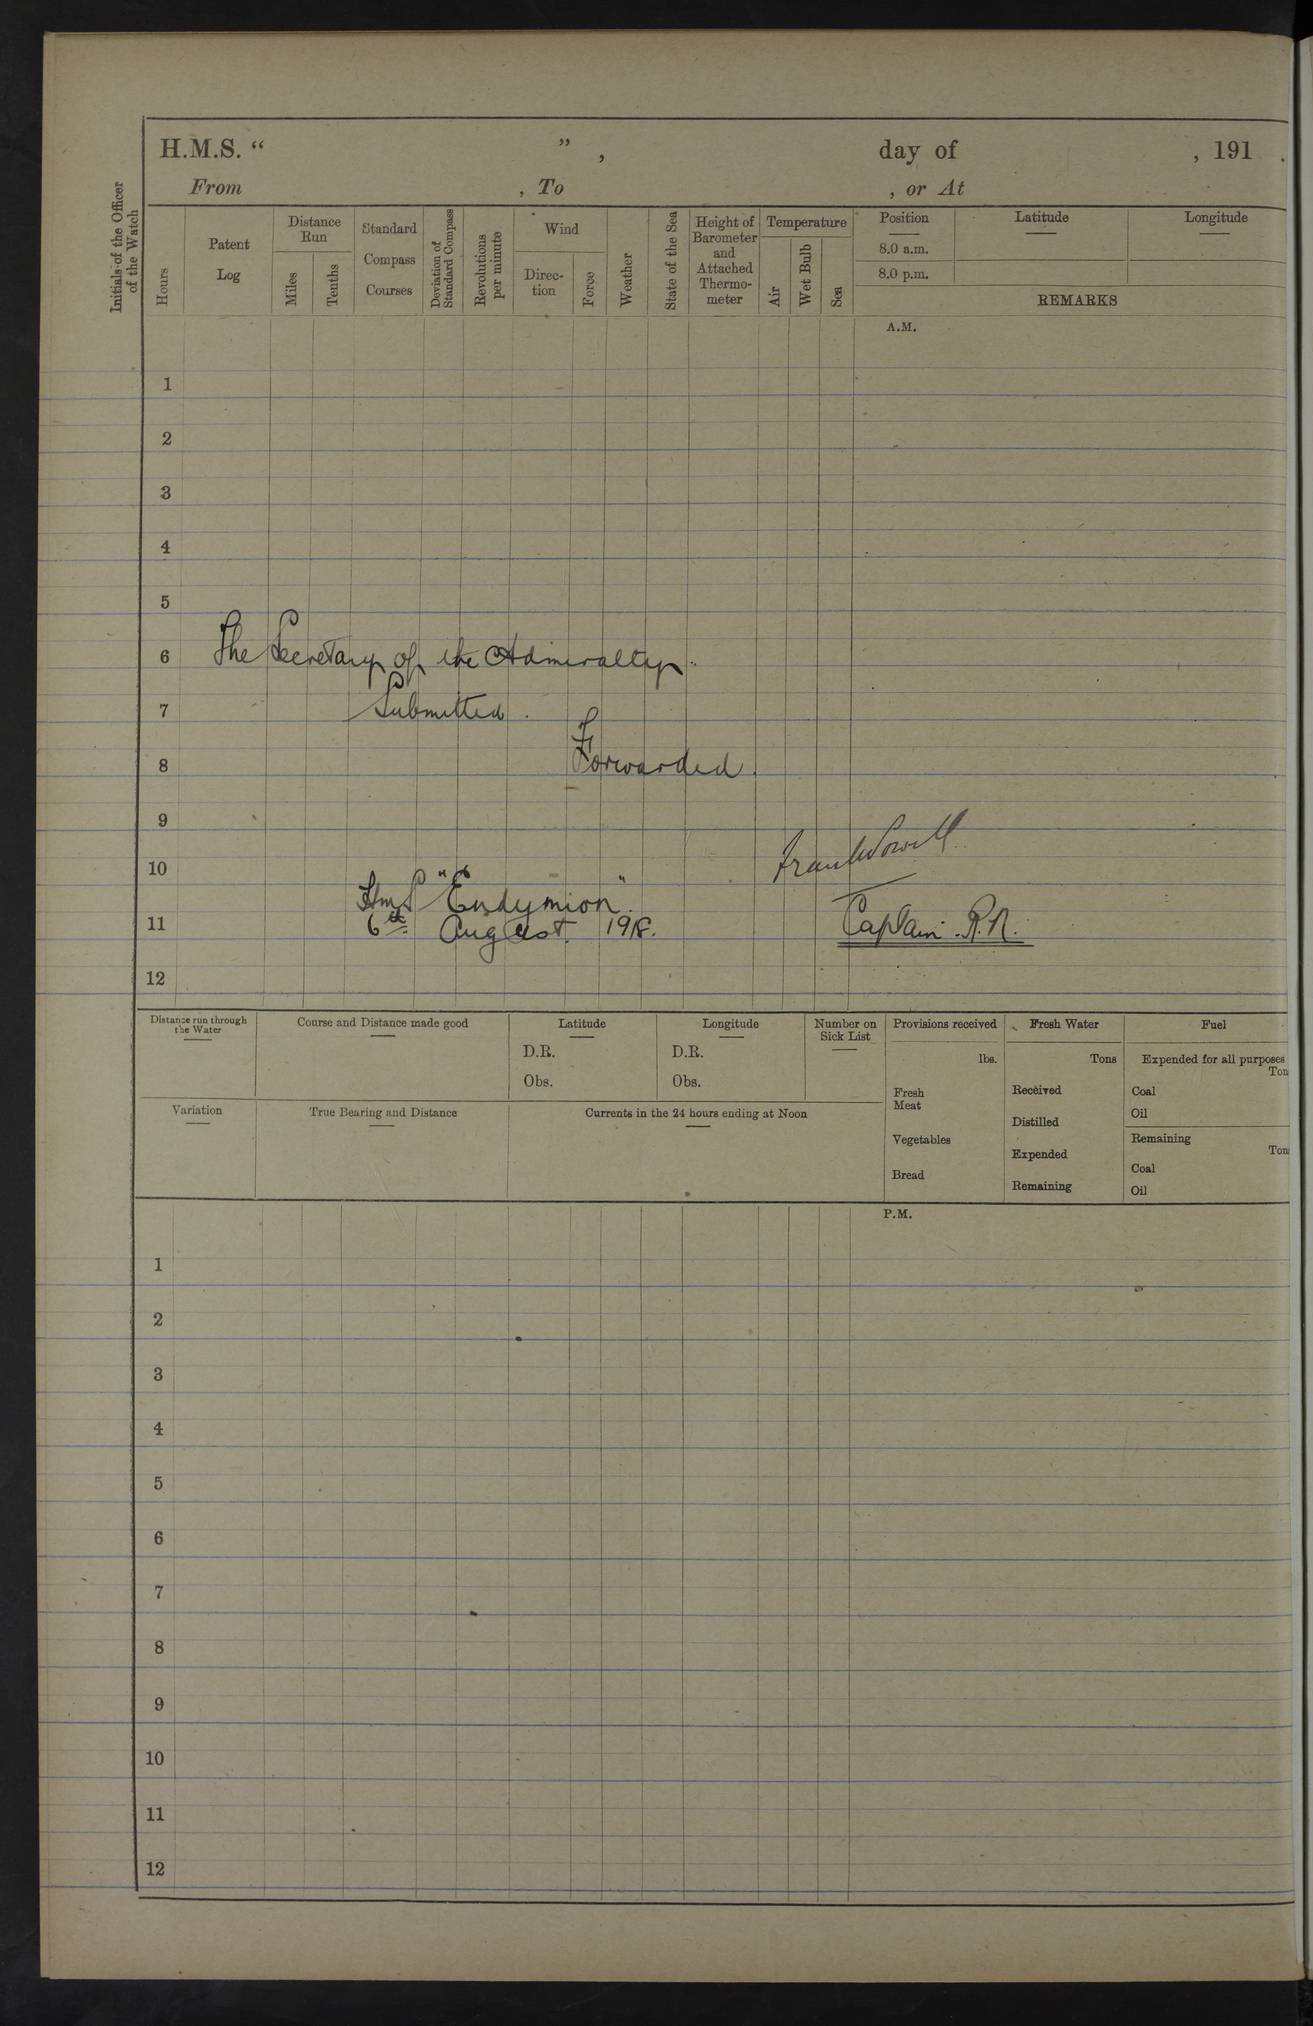 H.M.S. “ ” , day of , 191 .
From , To , or At
Initials of the Officer
of the Watch
Hours
Patent
Log
Distance
Run
Miles
Tenths
Standard
Compass
Courses
Deviation of
Standard Compass
Revolutions
per minute
Wind
Direc-
tion
Force
Weather
State of the Sea
Height of
Barometer
and
Attached
Thermo-
meter
Temperature
Air
Wet Bulb
Sea
Position
8.0 a.m.
8.0 p.m.
Latitude
Longitude
REMARKS
A.M.
1
2
3
4
5
6
The Secretary of the Admiralty.
7
Submitted.
8
Forwarded.
9
10
Frank Powell
HmS "Endymion".
11
6th August. 1918.
Captain. R.N.
12
Distance run through
the Water
Course and Distance made good
Latitude
D.R.
Obs.
Longitude
D.R.
Obs.
Number on
Sick List
Provisions received
lbs.
Fresh
Meat
Vegetables
Bread
Fresh Water
Tons
Received
Distilled
Expended
Remaining
Fuel
Expended for all purposes
Ton
Coal
Oil
Remaining
Ton
Coal
Oil
Variation
True Bearing and Distance
Currents in the 24 hours ending at Noon
P.M.
1
2
3
4
5
6
7
8
9
10
11
12